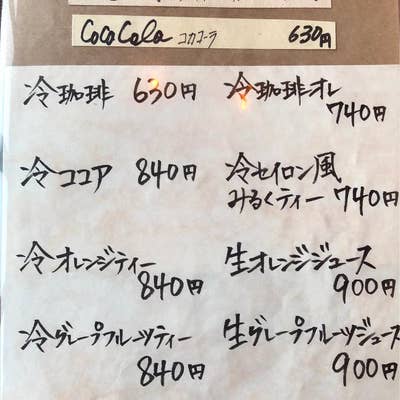 CocaCola コカコーラ 630円
冷珈琲 630円
冷珈琲オレ
740円
冷ココア 840円
冷セイロン風
みるくティー 740円
冷オレンジティー
840円
生オレンジジュース
900円
冷グレープフルーツティー
840円
生グレープフルーツジュース
900円